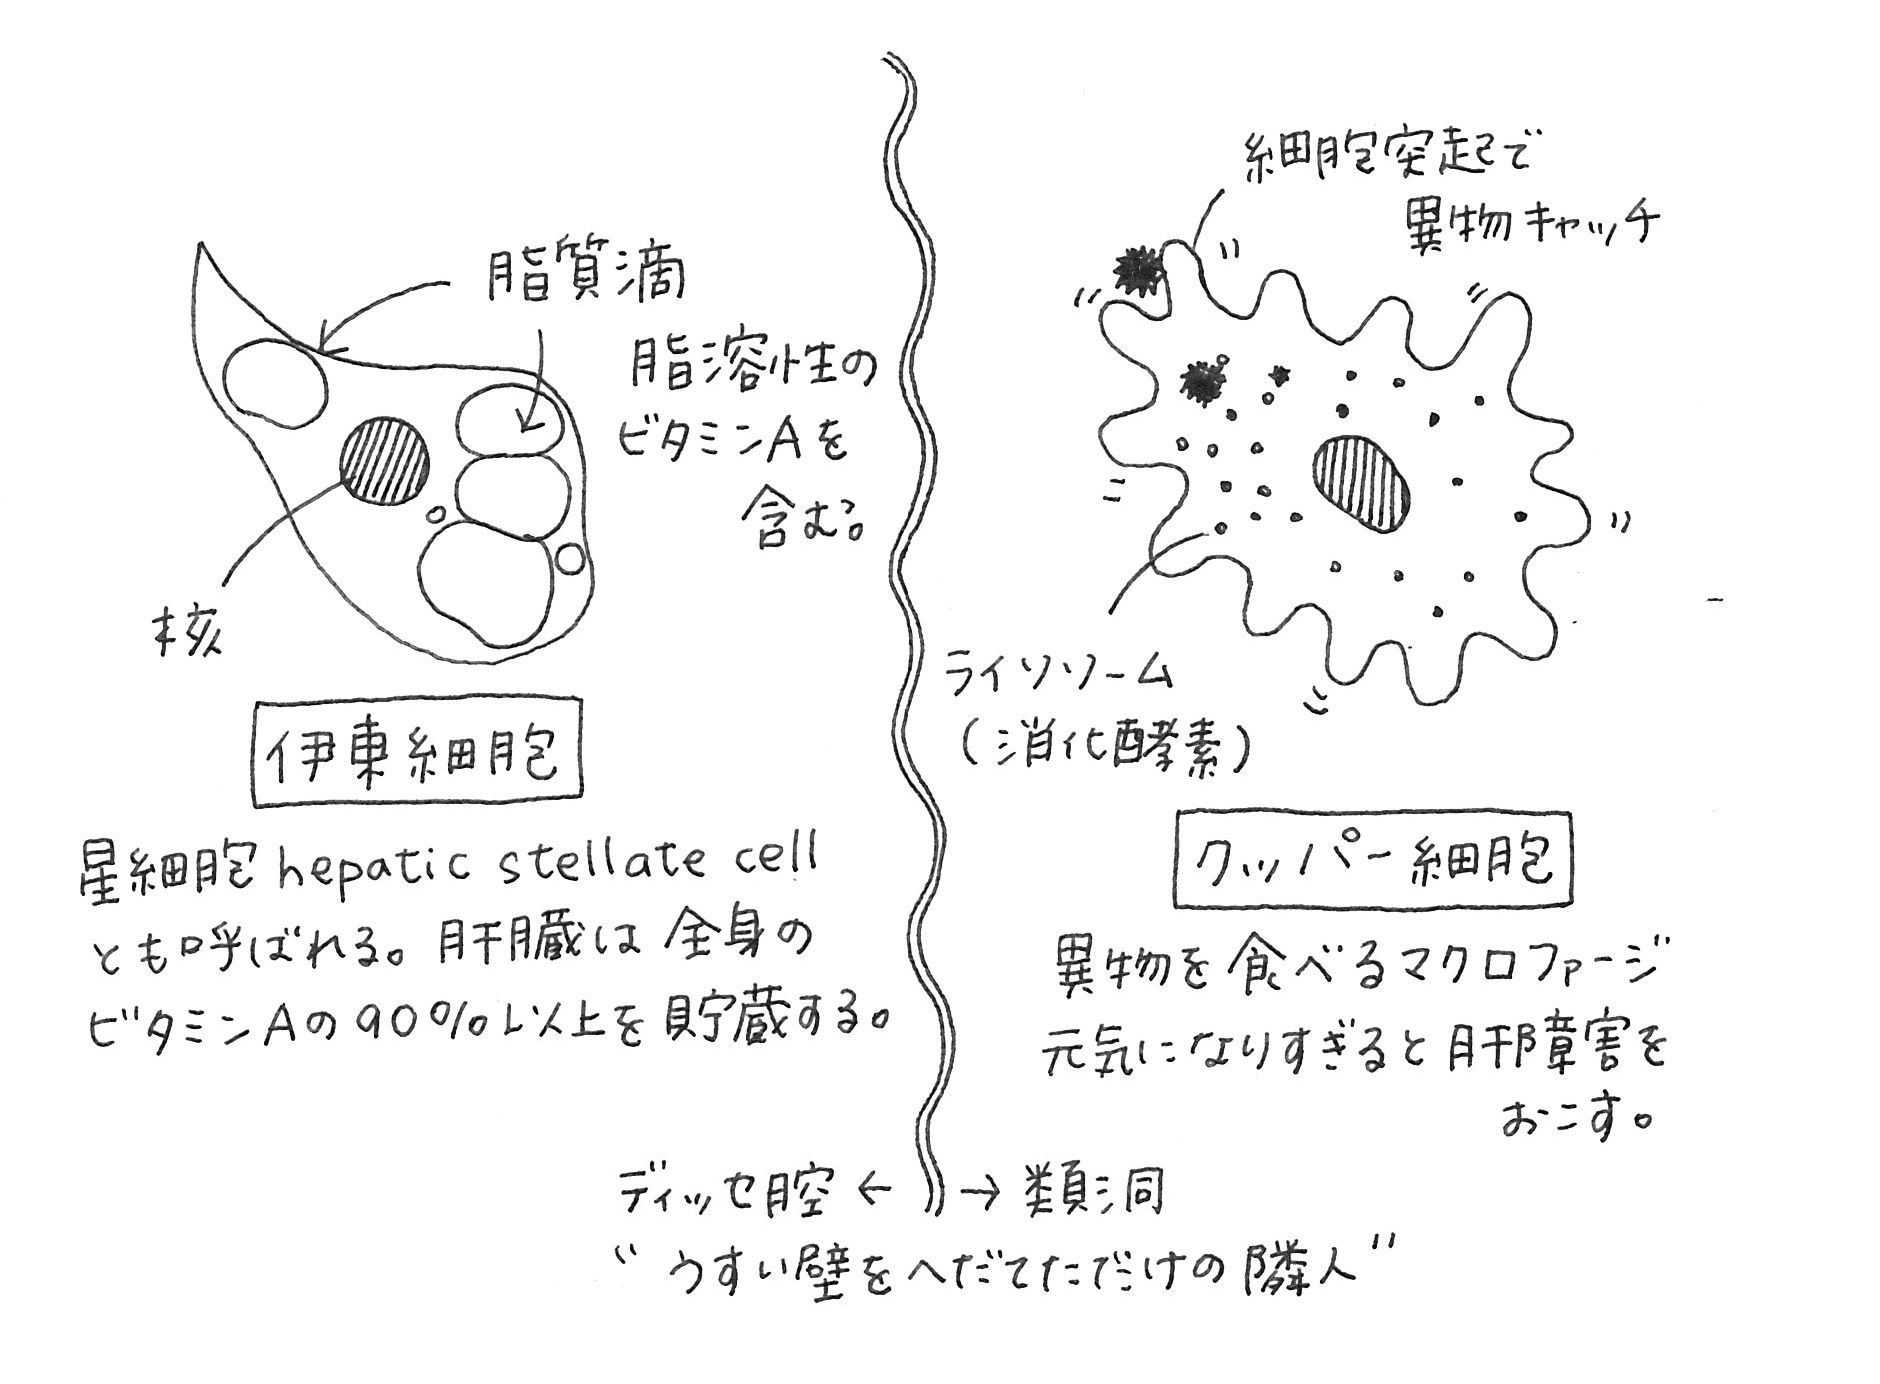 脂質滴
脂溶性の
ビタミンAを
含む。
核
伊東細胞
星細胞 hepatic stellate cell
とも呼ばれる。肝臓は全身の
ビタミンAの90%以上を貯蔵する。
細胞突起で
異物キャッチ
ライソソーム
(消化酵素)
クッパー細胞
異物を食べるマクロファージ
元気になりすぎると肝障害を
おこす。
ディッセ腔 ← → 類洞
“うすい壁をへだてただけの隣人”